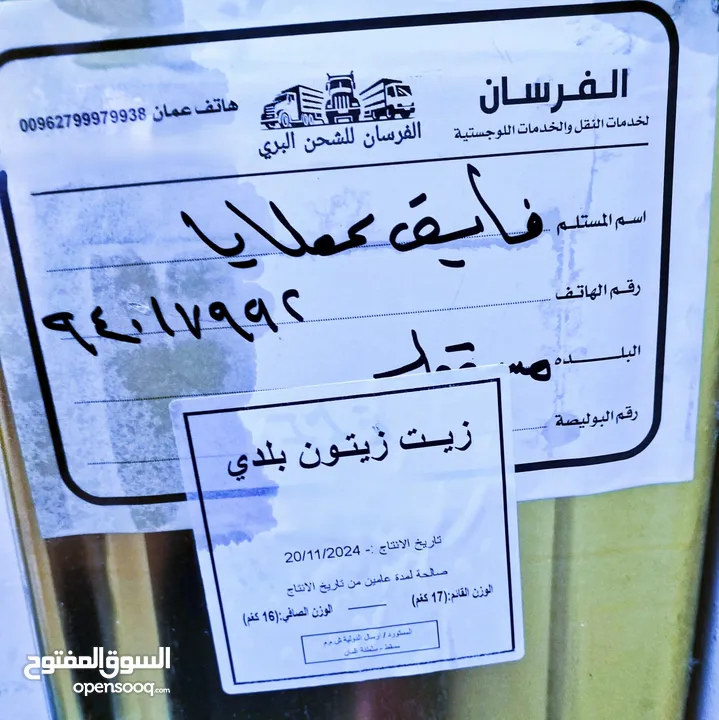 الفرسان
لخدمات النقل والخدمات اللوجستية
الفرسان للشحن البري
هاتف عمان 00962799979938
اسم المستلم فايق عطايا
رقم الهاتف ٩٤٠١٧٩٩٢
البلده مسقط
رقم البوليصة
زيت زيتون بلدي
تاريخ الانتاج :- 20/11/2024
صالحة لمدة عامين من تاريخ الانتاج
الوزن القائم:(17 كغم) الوزن الصافي:(16 كغم)
المستورد / ارسال الدولية ش.م.م
مسقط - سلطنة عمان
السوق المفتوح
opensooq.com